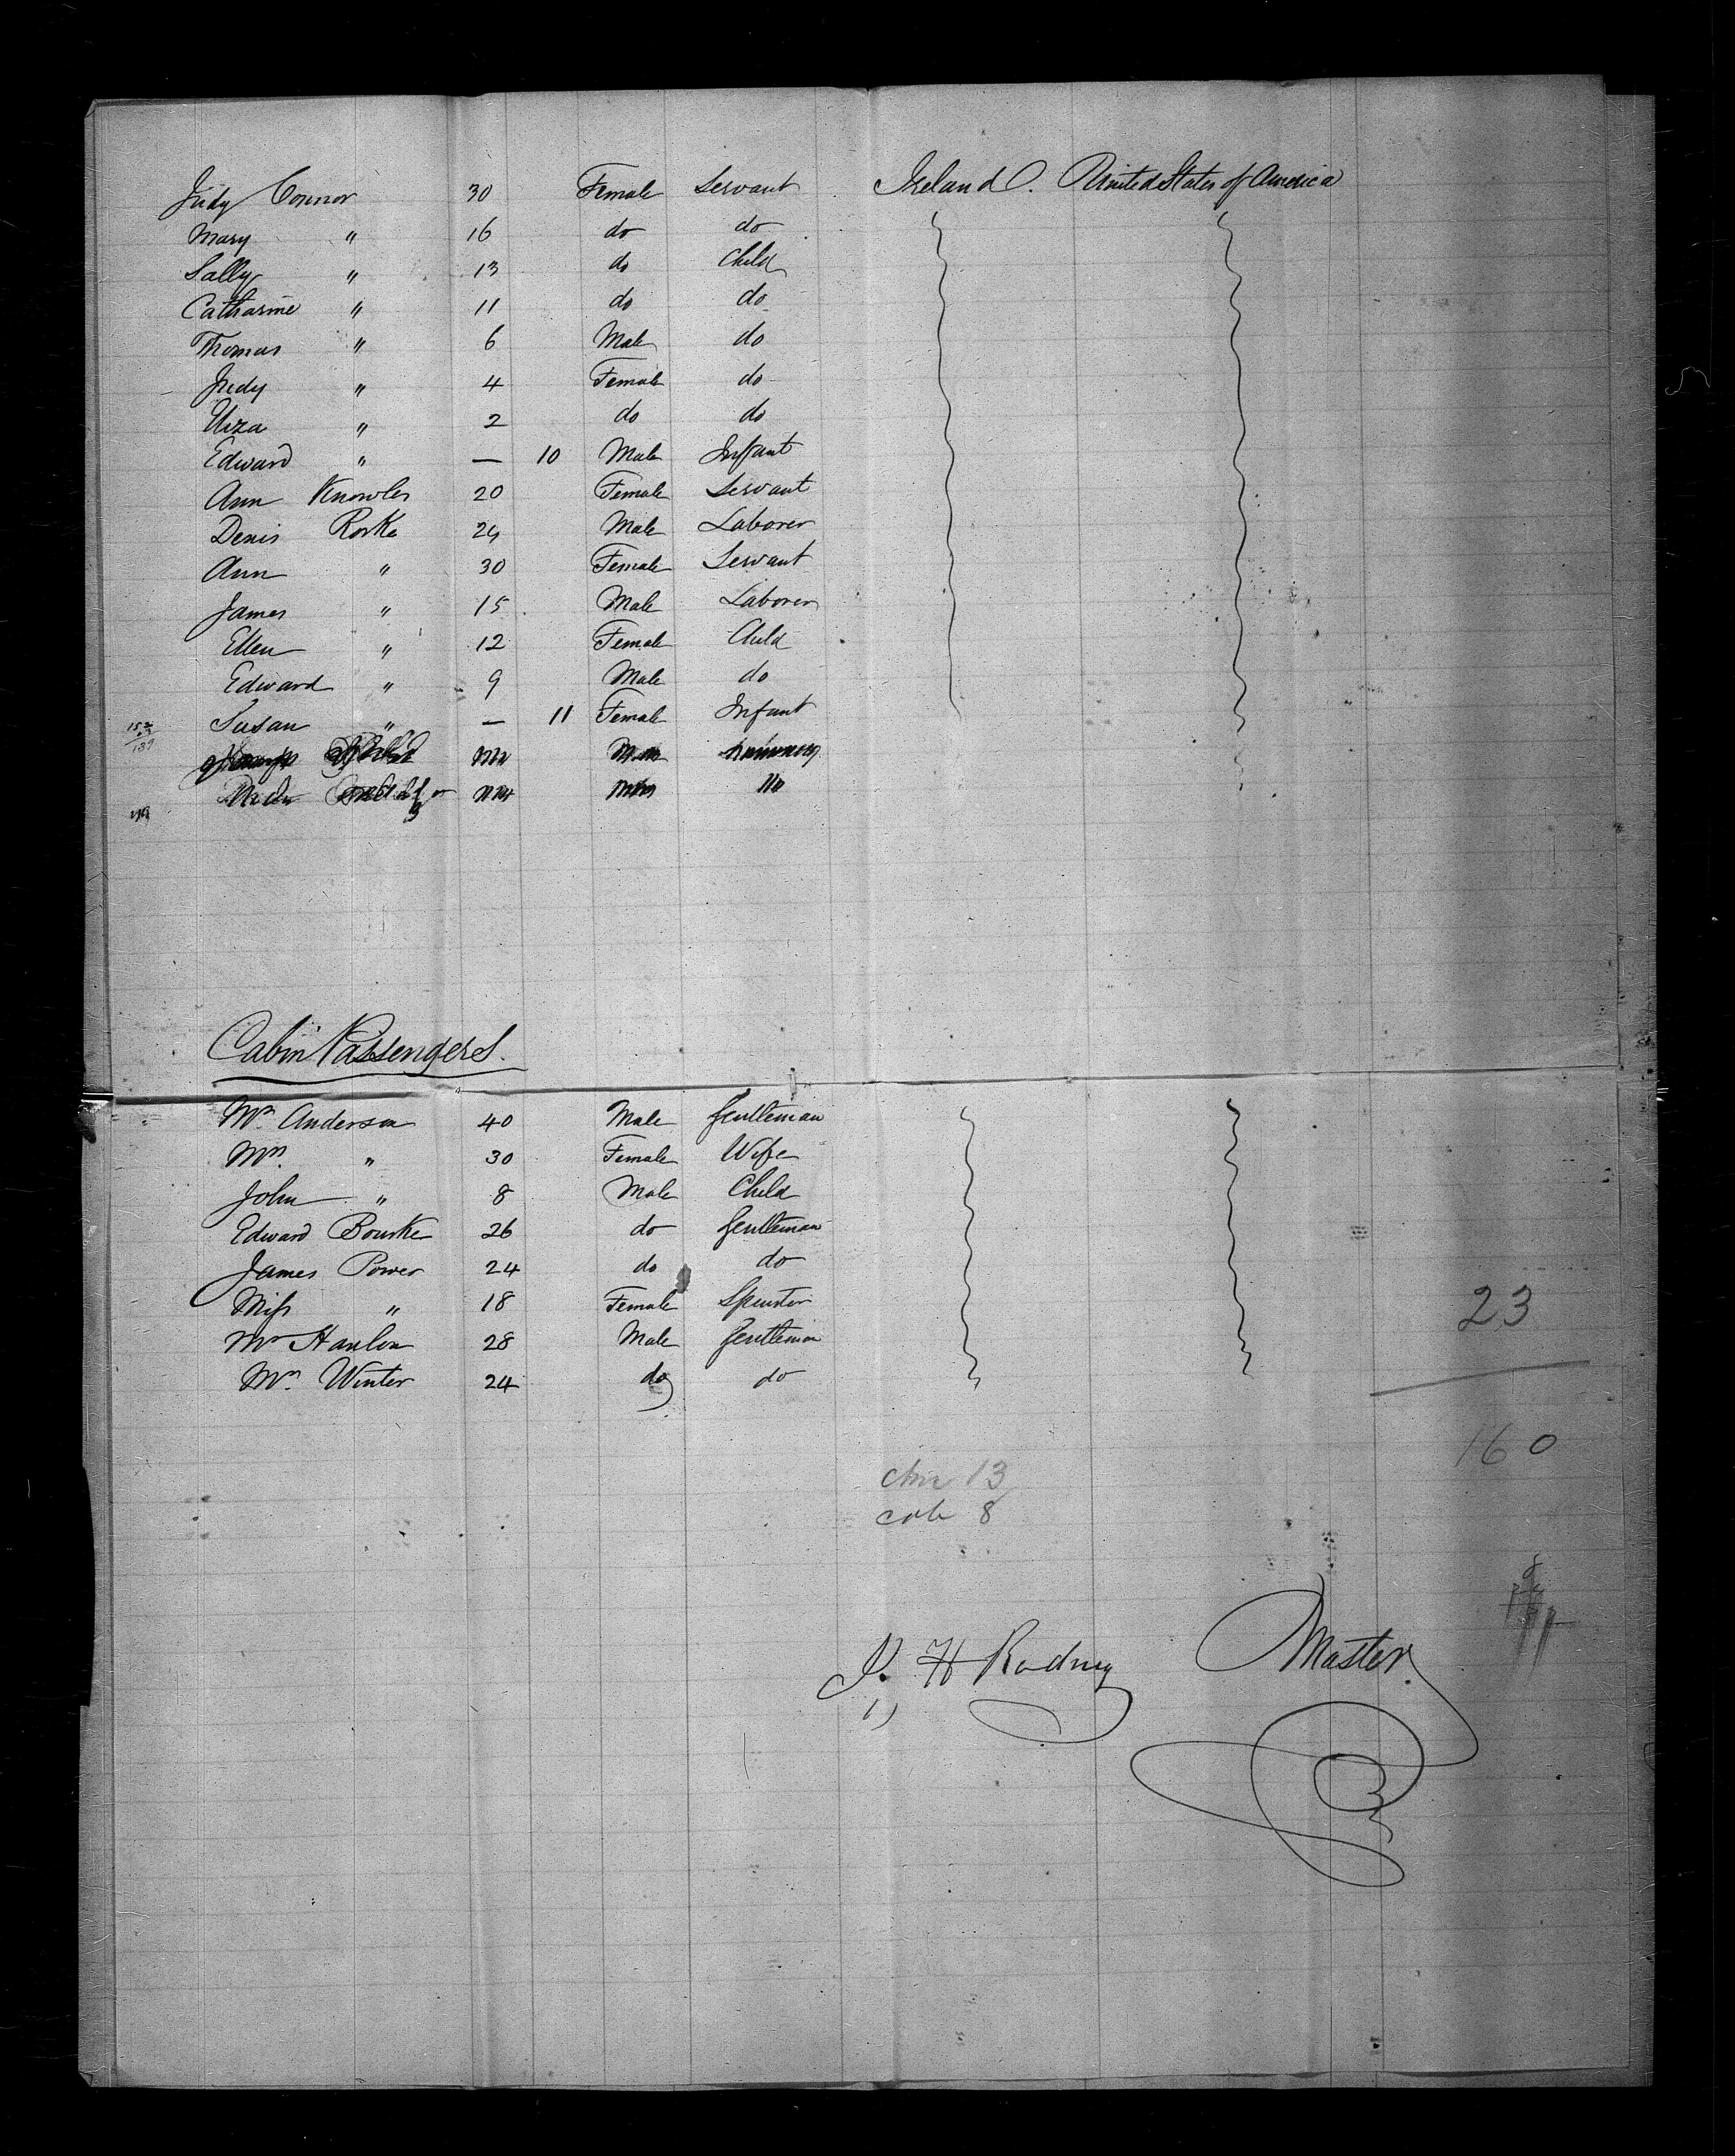 Judy Connor 30 Female Servant Ireland. United States of America
Mary " 16 do do
Sally " 13 do Child
Catharine " 11 do do
Thomas " 6 Male do
Judy " 4 Female do
Eliza " 2 do do
Edward " — 10 Male Infant
Ann Knowles 20 Female Servant
Denis Rorke 24 Male Laborer
Ann " 30 Female Servant
James " 15 Male Laborer
Ellen " 12 Female Child
Edward " 9 Male do
Susan " — 11 Female Infant
Cabin Passengers.
Mr. Anderson 40 Male Gentleman
Mrs. " 30 Female Wife
John " 8 Male Child
Edward Bourke 26 do Gentleman
James Power 24 do do
Miss " 18 Female Spinster
Mr Hanlon 28 Male Gentleman
Mr. Winter 24 do do
23
160
13
8
H Rodney Master.